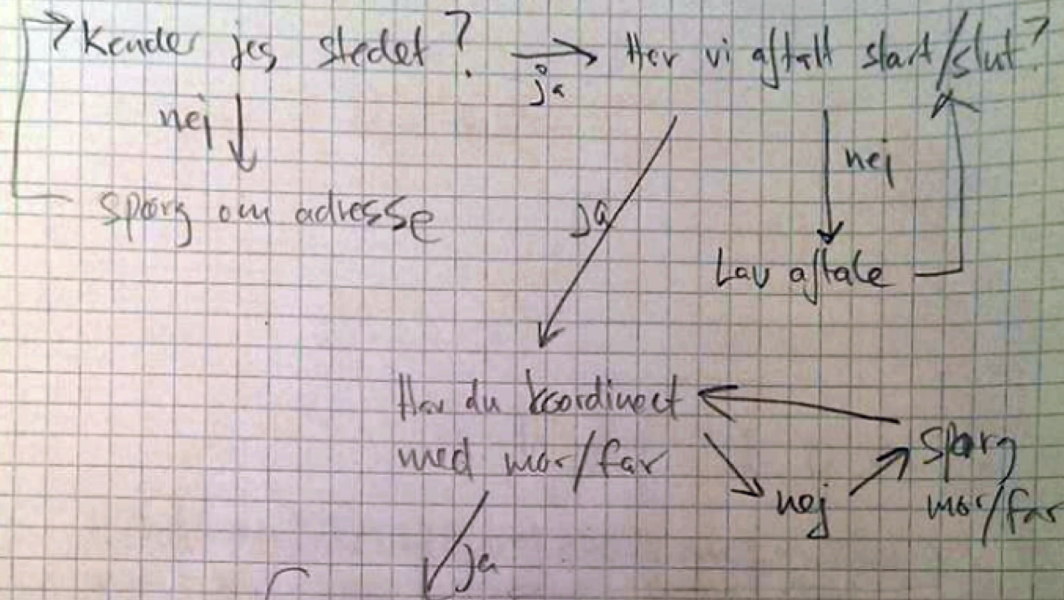 Kender jeg stedet?
ja
Har vi aftalt start/slut?
nej
Spørg om adresse
nej
ja
Lav aftale
Har du koordineret
med mor/far
Spørg
mor/far
nej
ja